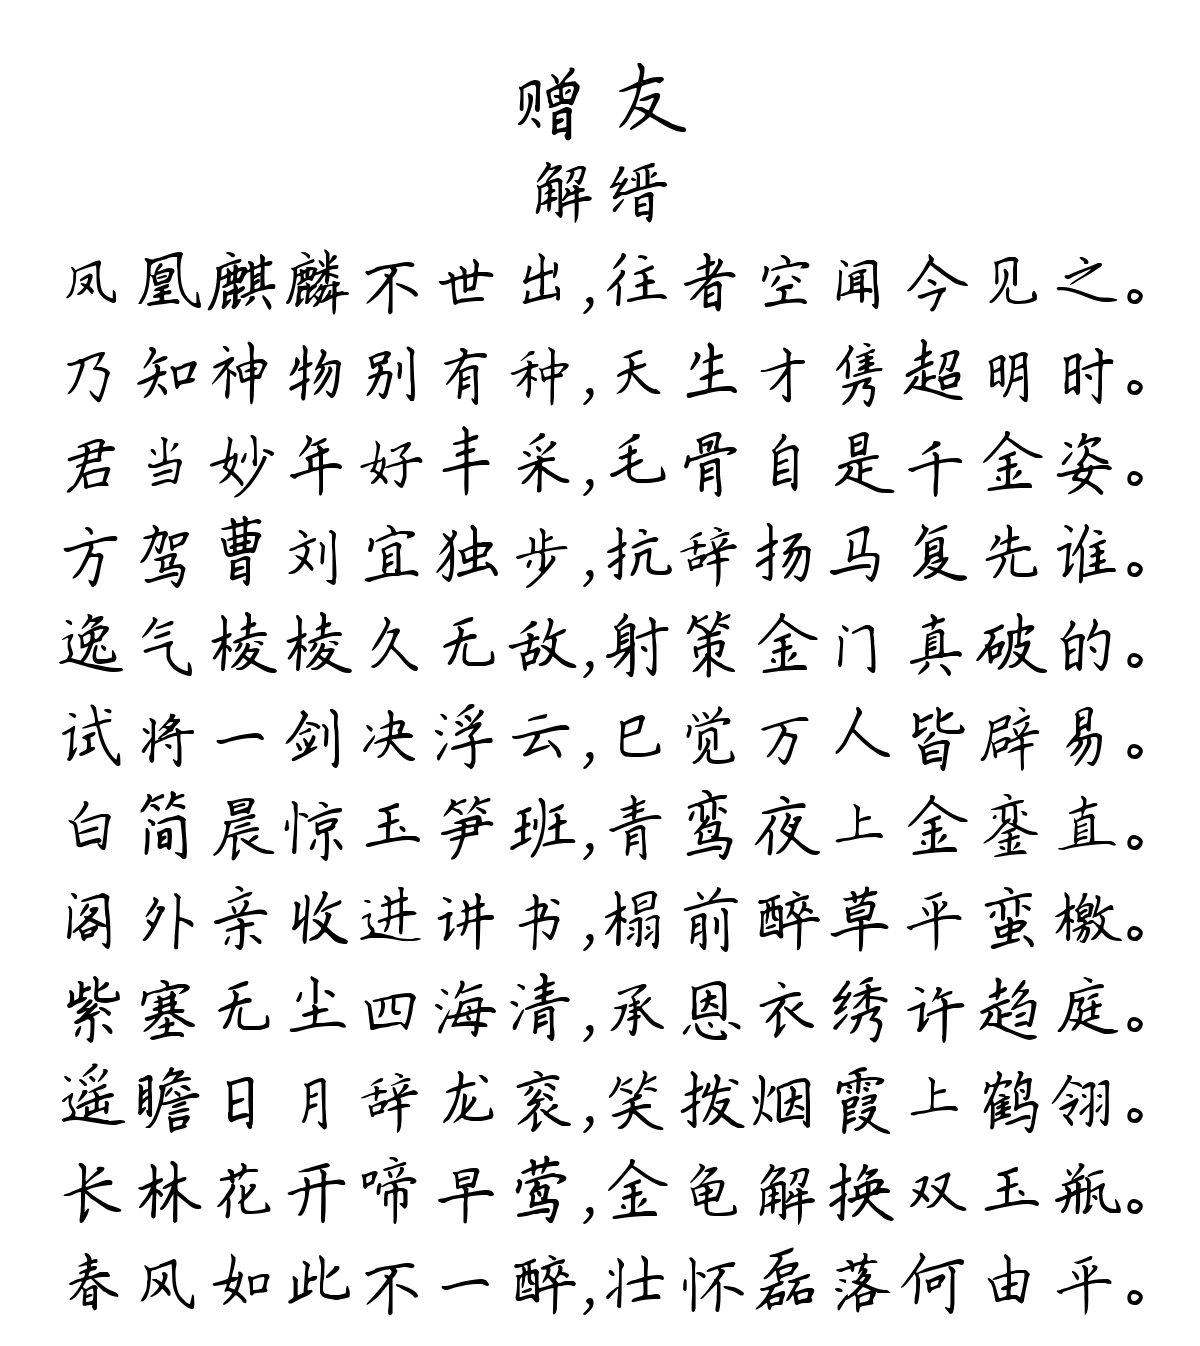 赠友
解缙
凤凰麒麟不世出,往者空闻今见之。
乃知神物别有种,天生才隽超明时。
君当妙年好丰采,毛骨自是千金姿。
方驾曹刘宜独步,抗辞扬马复先谁。
逸气棱棱久无敌,射策金门真破的。
试将一剑决浮云,已觉万人皆辟易。
白简晨惊玉笋班,青鸾夜上金銮直。
阁外亲收进讲书,榻前醉草平蛮檄。
紫塞无尘四海清,承恩衣绣许趋庭。
遥瞻日月辞龙衮,笑拨烟霞上鹤翎。
长林花开啼早莺,金龟解换双玉瓶。
春风如此不一醉,壮怀磊落何由平。